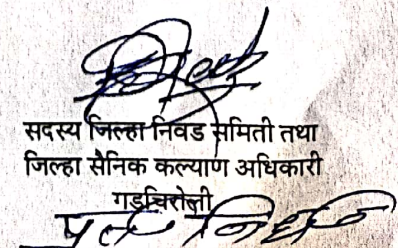 सदस्य जिल्हा निवड समिती तथा
जिल्हा सैनिक कल्याण अधिकारी
गडचिरोली